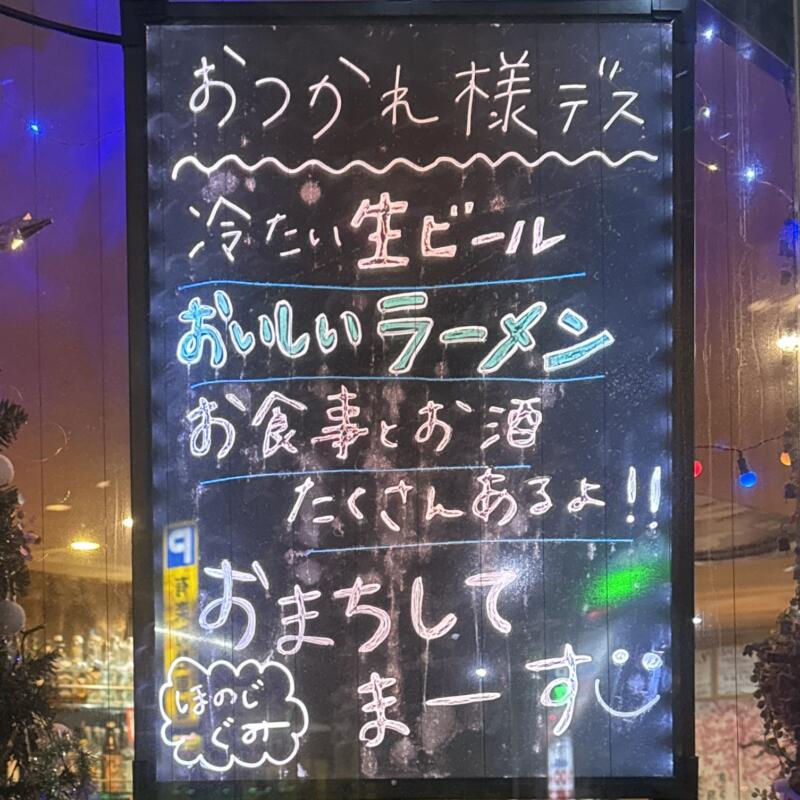 おつかれ様デス
冷たい生ビール
おいしいラーメン
お食事とお酒
たくさんあるよ!!
おまちして
まーす
ほのじ
ぐみ
P
有